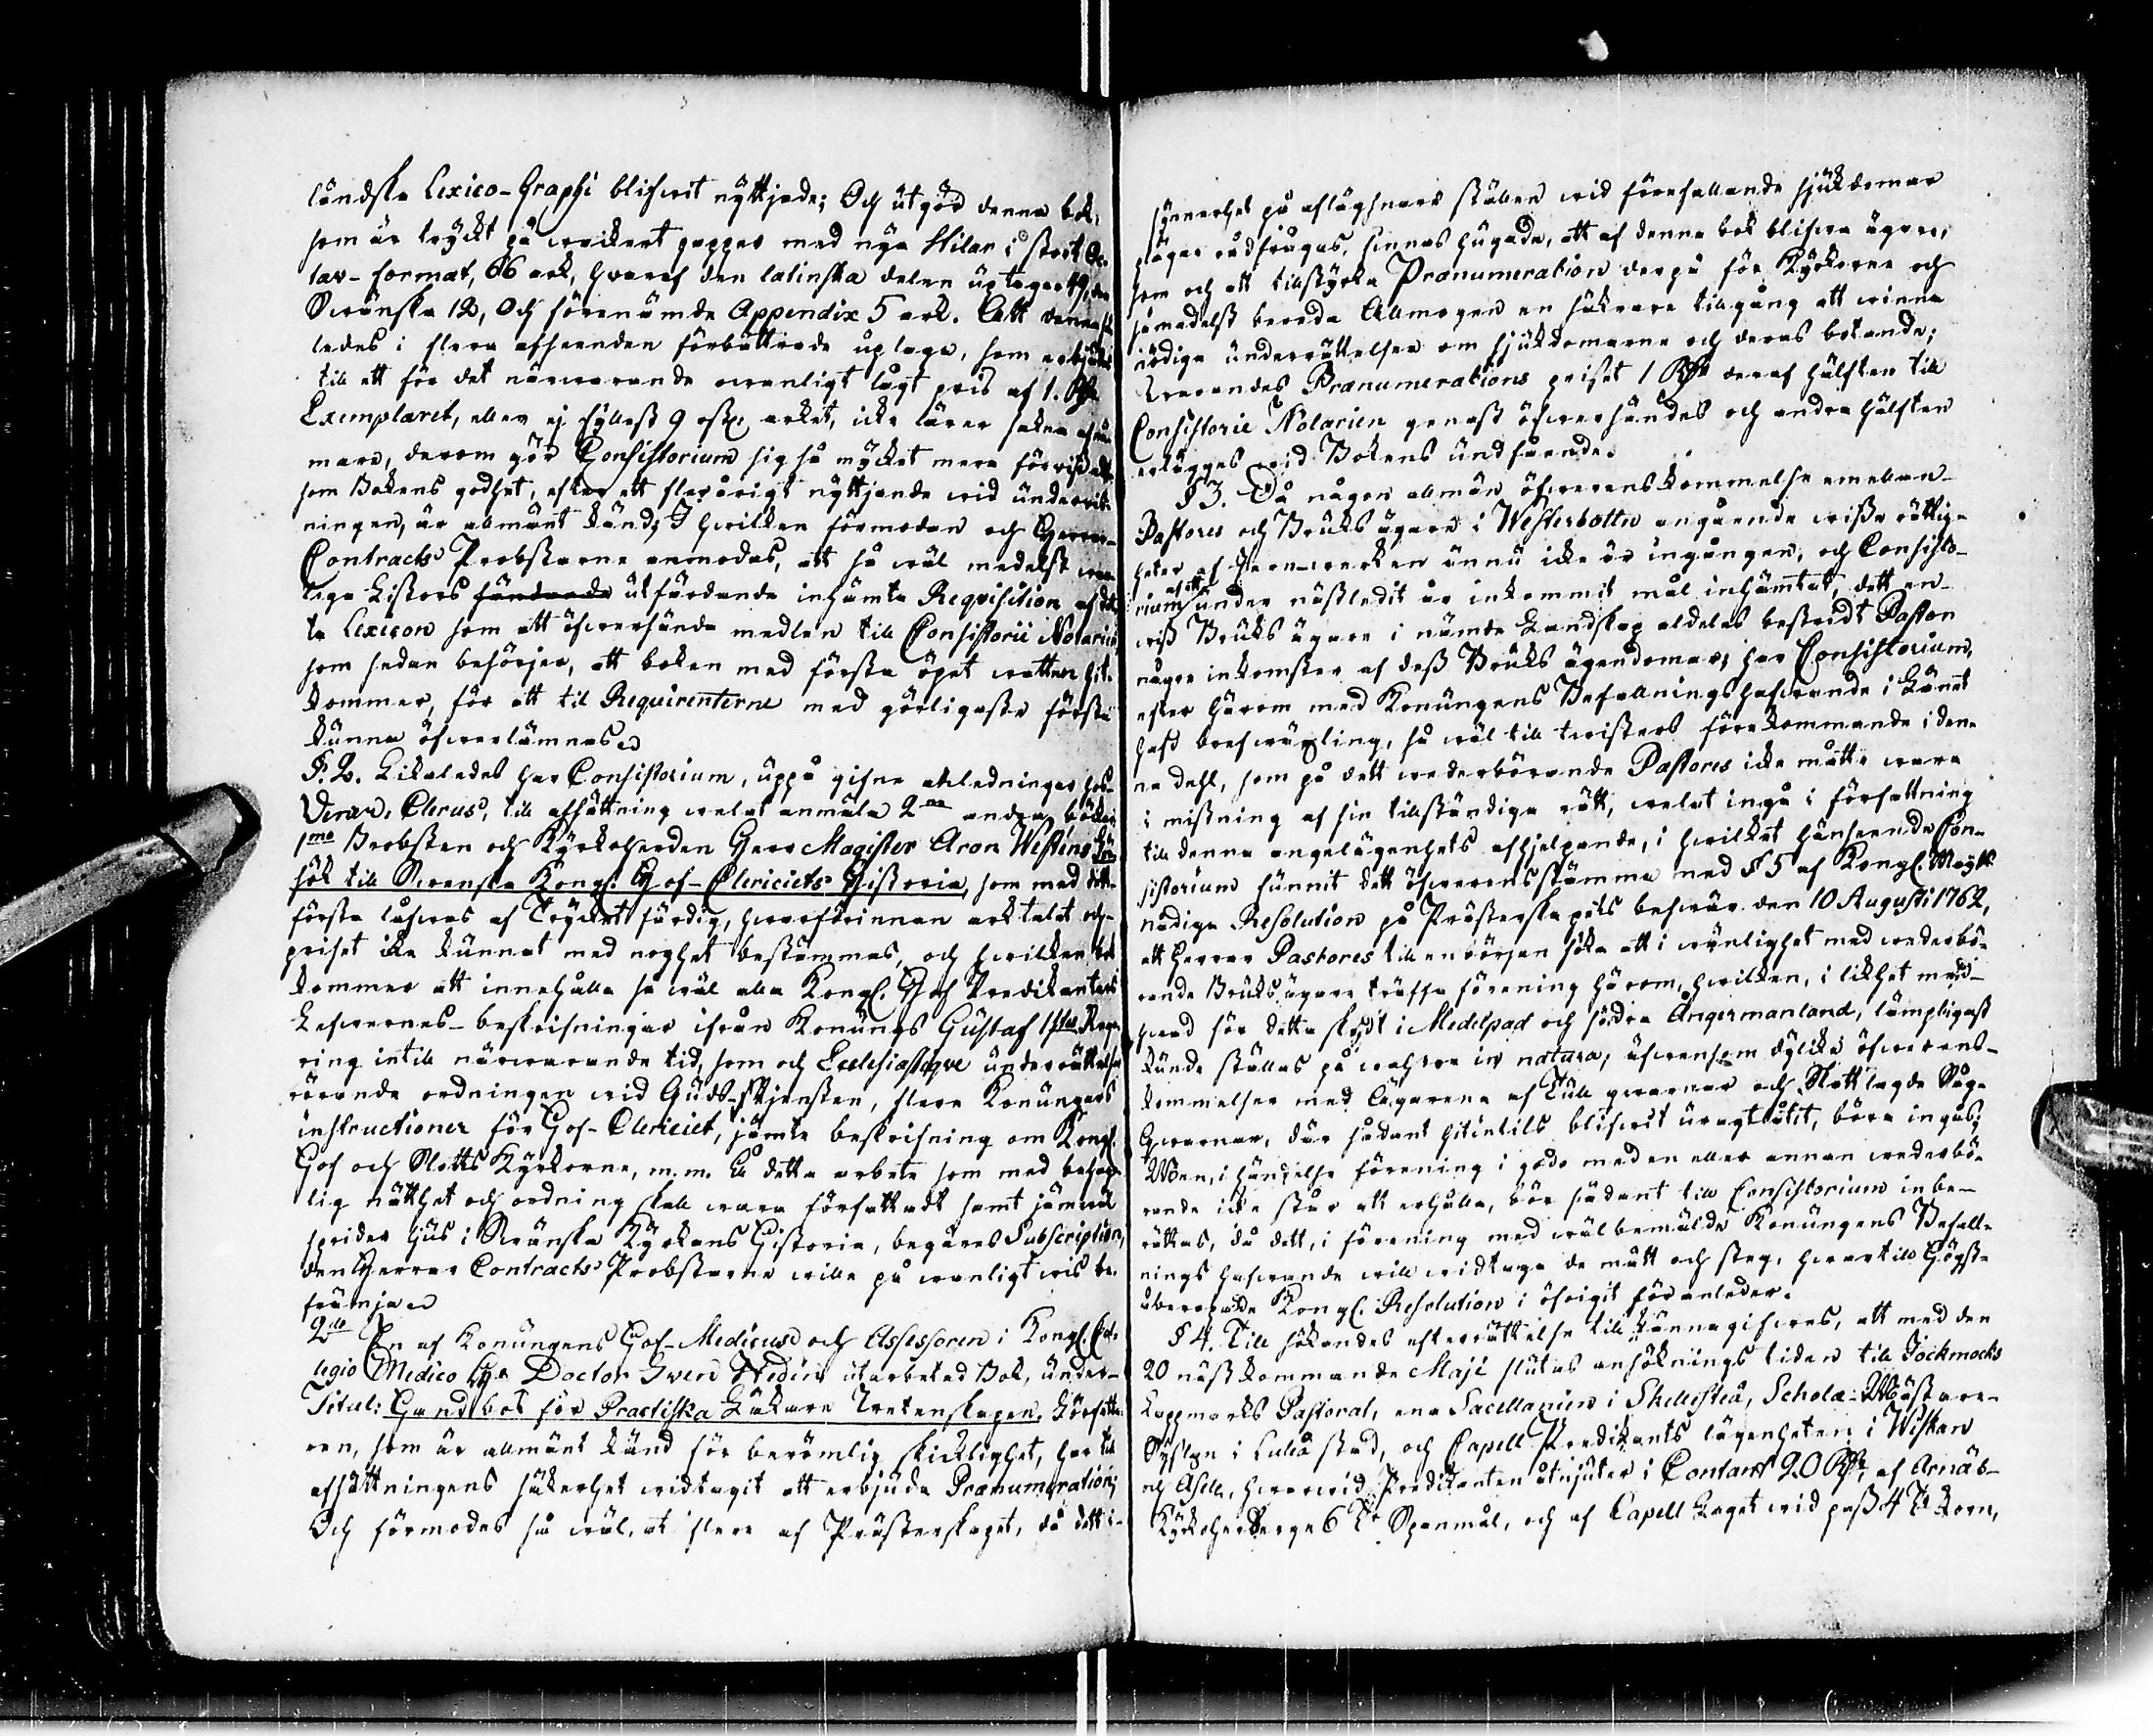 ländska Lexico-Graphi blifwit nyttjade; Och utgör denna bok,
som är tryckt på wackert papper med nya Stilar i stort Oc-
tav-format, 66 ark, hwaraf den latinska delen uptager 49, den
Swänska 12, Och förenämde Appendix 5 ark. Att denna så
ledes i flera afseenden förbättrade uplaga, som erbjudes
till ett för det närwarande owanligt lågt pris af 1. Rd
Exemplaret, eller ej fyllest 9 rst. arket, icke lärer sakna afnä-
mare, derom gör Consistorium sig så mycket mera förwissadt,
som Bokens godhet, efter ett flerårigt nyttjande wid underwis-
ningen, är allmänt känd; I hwilken förmodan och Herrar
Contracts Probstarne anmodas, att så wäl medelst wan-
liga Listors utfärdande inhämta Requisition af det-
ta Lexicon som att öfwersända medlen till Consistorii Notarien,
som sedan besörjer, att boken med första öpet watten hit-
kommer, för att til Requirenterne med görligaste första
kunna öfwerlämnas.
§. 2. Likaledes har Consistorium, uppå gifne anledningar hos
Vener. Clerus, till afsättning welat anmäla 2ne andra böcker
1mo Probsten och Kyrkoherden Herr Magister Aron Westéns För-
sök till Swenska Kongl: Hof-Clericiets Historia, som med det
första lofwas af Trycket färdig, hwarförinnan arktalet och
priset icke kunnat med noghet bestämmas, och hwilken bok
kommer att innehålla så wäl alla Kongl. Hof Predikanters
Lefwernes-beskrifningar ifrån Konung Gustaf Istes Rege-
ring intill närwarande tid, som och Ecclesiastique underrättelser
rörande ordningen wid Guds-tjensten, flera Konungars
instructioner för Hof-Clericiet, jämte beskrifning om Kongl.
Hof och Slotts Kyrkorne, m. m. Å detta arbete som med behag-
lig nätthet och ordning skall wara författadt samt jämwäl
sprider ljus i Swänska Kyrkans Historia, begäres Subscription,
den Herrar Contracts Probstarne wille på wanligt wis be-
främja.
2do En af Konungens Hof-Medicus och Assessoren i Kongl. Col-
legio Medico Hr Doctor Sven Hedin utarbetad Bok, under
Titul: Handbok för Practiska Läkare Wetenskapen. Författa-
ren, som är allmänt känd för berömlig skicklighet, har till
afsättningens säkerhet widtagit att erbjuda Pranumeration;
Och förmodes så wäl, at flere af Prästerskapet, då dett i
synnerhet på aflägsnare ställen wid förefallande sjukdomar
plägar rådfrågas, finnas hugade, att af denna bok blifwa ägare,
som och att tillstyrka Pranumeration derpå för Kyrkorne och
såmedelst bereda Allmogen en säkrare tillgång att winna
nödiga underrättelser om sjukdomarne och deras botande;
Pranumerations priset 1 Rd deraf hälften till
Consistorie Notarien genast öfwersändes och andra hälften
erlägges wid Bokens undfående.
§ 3. Då någon allmän öfwerenskommelse emellan
Pastores och Bruks ägare i Westerbottn angående wissa rättig-
heter af Jern-werken ännu icke är ingången, och Consisto-
rium af ett under nästledit år inkommit mål inhämtat, dett en
wiss Bruks ägare i nämde Landskap aldeles bestridt Pastor
någre inkomster af dess Bruks ägendomar; har Consistorium,
efter härom med Konungens Befallningshafwande i Länet
haft brefwäxling, så wäl till twisters förekommande i den-
na dehl, som på dett wederbörande Pastores icke måtte wara
i mistning af sin tillständiga rätt, welat ingå i författning
till denna angelägenhets afhjelpande, i hwilket hänseende Con-
sistorium funnit dett öfwerensstämma med § 5 af Kongl. Maj:ts
nådiga Resolution på Prästerskapets beswär den 10 Augusti 1762,
att Herrar Pastores till en början söka att i wänlighet med wederbö-
rande Bruks ägare träffa förening härom, hwilken, i likhet med
hwad för detta skedt i Medelpad och södra Ångermanland, lämpligast
kunde ställas på wahror in natura, äfwensom dylike öfwerens-
kommelser med Ägarena af Tull qwarnar och Skattlagde Såg-
qwarnar, där sådant hitintils blifwit uragtlåtit, böra ingås;
Men, i händelse förening i godo med en eller annan wederbö-
rande icke står att erhålla, bör sådant till Consistorium inbe-
rättas, då dett, i förening med wälbemälde Konungens Befall-
nings hafwande will widtaga de mått och steg, hwartill Högst-
åberopade Kongl. Resolution i öfrigit föranleder.
§ 4. Till sökandes efterrättelse till kännagifwes, att med den
20 nästkommande Maji slutas ansöknings tiden till Jockmocks
Lappmarks Pastorat, ena Sacellanien i Skellefteå, Scholæ-Mästare-
Sysslan i Luleå stad, och Capell Predikants lägenheten i Wiskan
och Asele, hwarwid Predikanten åtnjuter i Contant 20 Rd, af Arnäs
Kyrkoherberge 6 Tr Spanmål, och af Capell Laget wid pass 4 Tr korn,